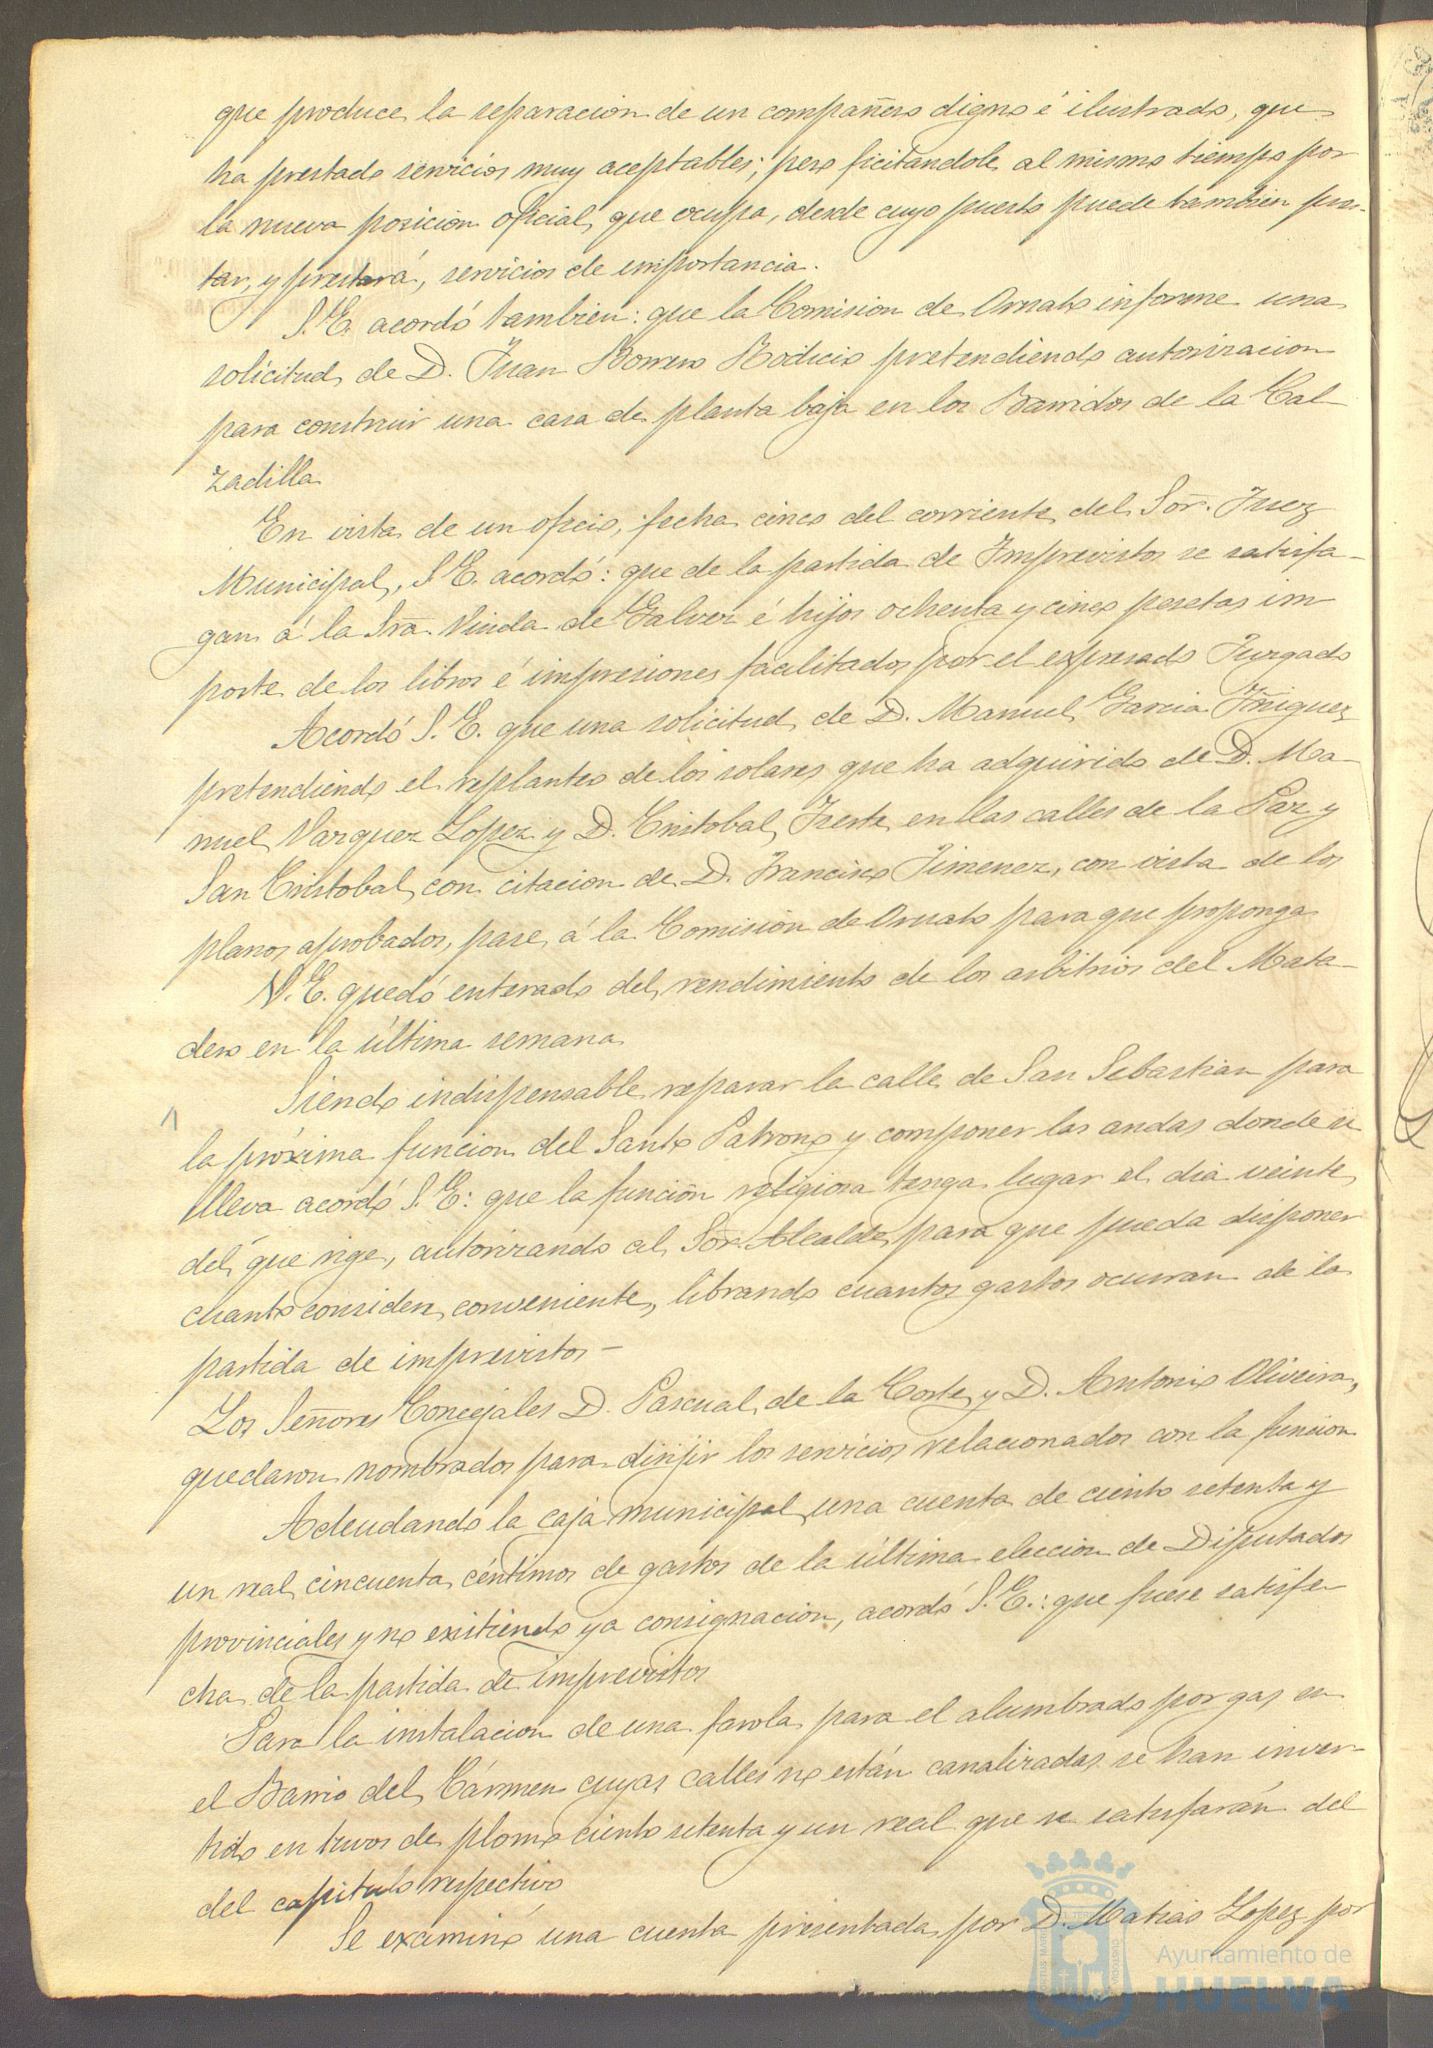 que produce la separacion de un compañero digno é ilustrado, que
ha prestado servicios muy aceptables; pero ficitandole al mismo tiempo por
la nueva posicion oficial que ocupa, desde cuyo puesto puede tambien pres-
tar, y prestará, servicios de importancia.
S. E. acordó tambien: que la Comision de Ornato informe una
solicitud de D. Juan Borrero Rodicio pretendiendo autorizacion
para construir una casa de planta baja en los Barridos de la Cal
zadilla
En vista de un oficio, fecha cinco del corriente del Sōr. Juez
Municipal, S. E. acordó: que de la partida de Imprevistos se satisfa-
gan á la Sra. Viuda de Galvez é hijos ochenta y cinco pesetas im
porte de los libros é impresiones facilitados por el expresado Juzgado
Acordó S. E. que una solicitud de D. Manuel Garcia Yñiguez
pretendiendo el replanteo de los solares que ha adquirido de D. Ma-
nuel Vazquez Lopez y D. Cristobal en las calles de la Paz y
San Cristobal, con citacion de D. Francisco Jimenez, con vista de los
planos aprobados, pase á la Comisión de Ornato para que proponga
S. E. quedó enterado del rendimiento de los arbitrios del Mata-
dero en la última semana
Siendo indispensable reparar la calle de San Sebastian para
la próxima funcion del Santo Patrono y componer las andas donde se
lleva acordó S. E: que la función religiosa tenga lugar el dia veinte
del que rige, autorizando al Sōr. Alcalde para que pueda disponer
cuanto considere conveniente, librando cuantos gastos ocurran de la
partida de imprevistos -
Los Señores Concejales D. Pascual de la Corte y D. Antonio Oliveira,
quedaron nombrados para dirijir los servicios relacionados con la funcion
Adeudando la caja municipal una cuenta de ciento setenta y
un real cincuenta céntimos de gastos de la última eleccion de Diputados
provinciales y no existiendo ya consignacion, acordó S. E.: que fuese satisfe-
cha de la partida de imprevistos
Para la instalacion de una farola para el alumbrado por gas en
el Barrio del Cármen cuyas calles no están canalizadas se han inver-
tido en tuvos de plomo ciento setenta y un real que se satisfarán del
del capitulo respectivo
Se examinó una cuenta presentada por D. Matias Lopez por
Ayuntamiento de
HUELVA